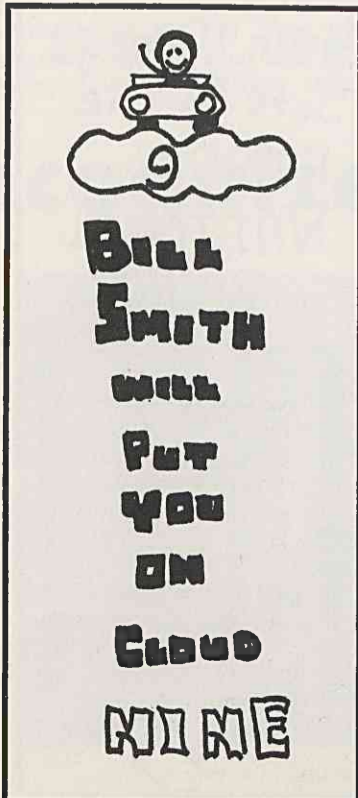 9
BILL
SMITH
WILL
PUT
YOU
ON
CLOUD
NINE